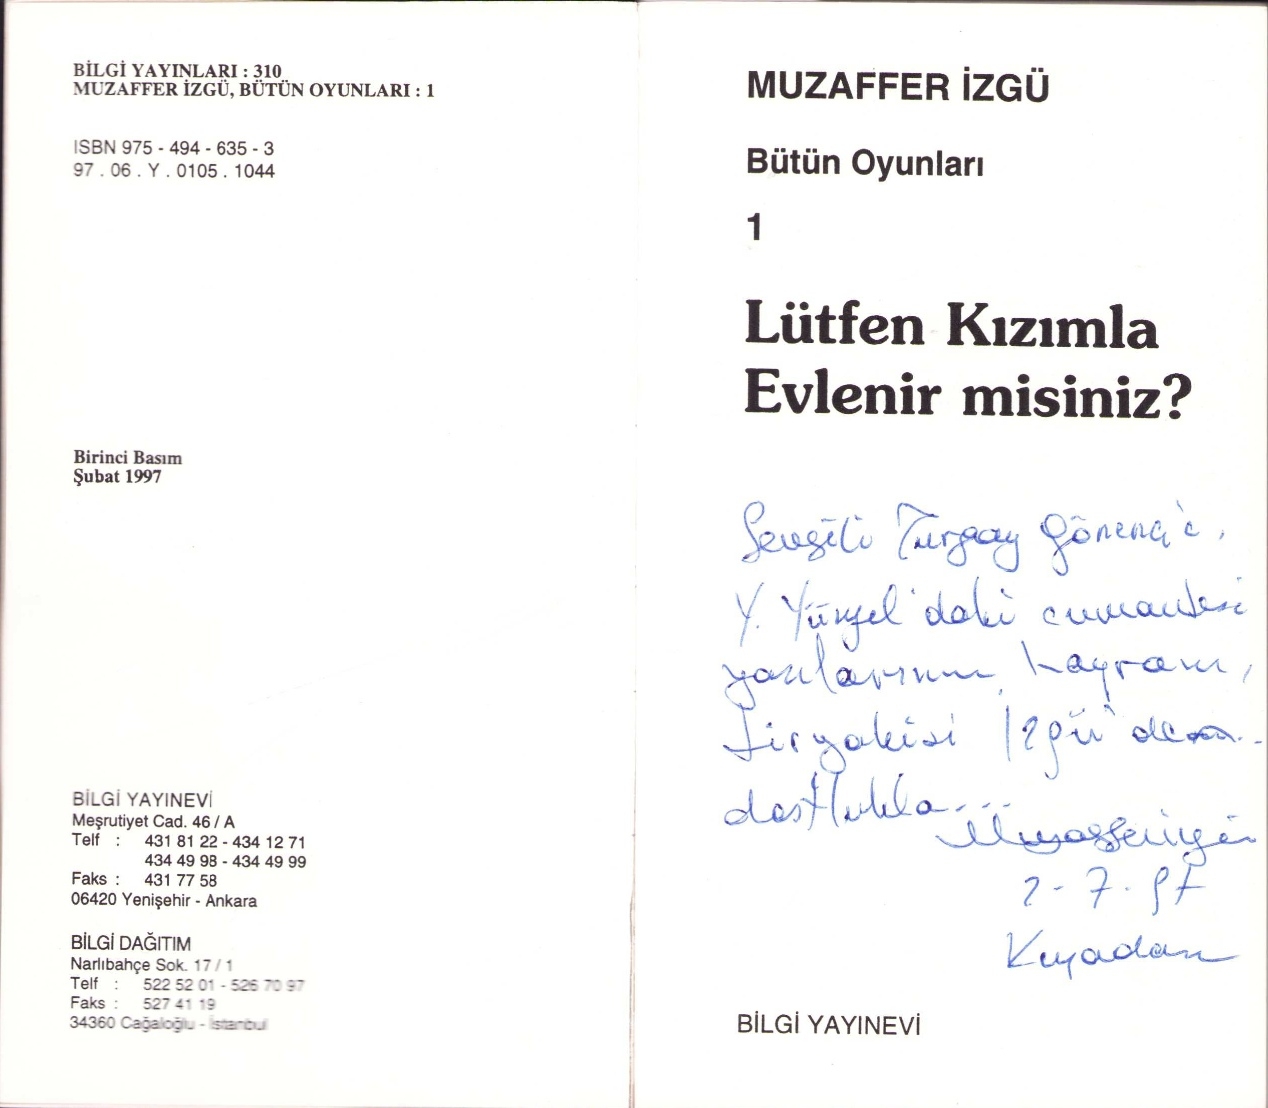 BİLGİ YAYINLARI : 310
MUZAFFER İZGÜ, BÜTÜN OYUNLARI : 1
ISBN 975 - 494 - 635 - 3
97 . 06 . Y . 0105 . 1044
Birinci Basım
Şubat 1997
BİLGİ YAYINEVİ
Meşrutiyet Cad. 46 / A
Telf : 431 81 22 - 434 12 71
434 49 98 - 434 49 99
Faks : 431 77 58
06420 Yenişehir - Ankara
BİLGİ DAĞITIM
Narlıbahçe Sok. 17 / 1
Telf : 522 52 01 - 526 70 97
Faks : 527 41 19
34360 Cağaloğlu - İstanbul
MUZAFFER İZGÜ
Bütün Oyunları
1
Lütfen Kızımla
Evlenir misiniz?
Sevgili Turgay Gönenç'e,
Y. Yüzyıl'daki cumartesi
yazılarının hayranı,
tiryakisi İzgü'den
dostlukla...
2-7-97
BİLGİ YAYINEVİ